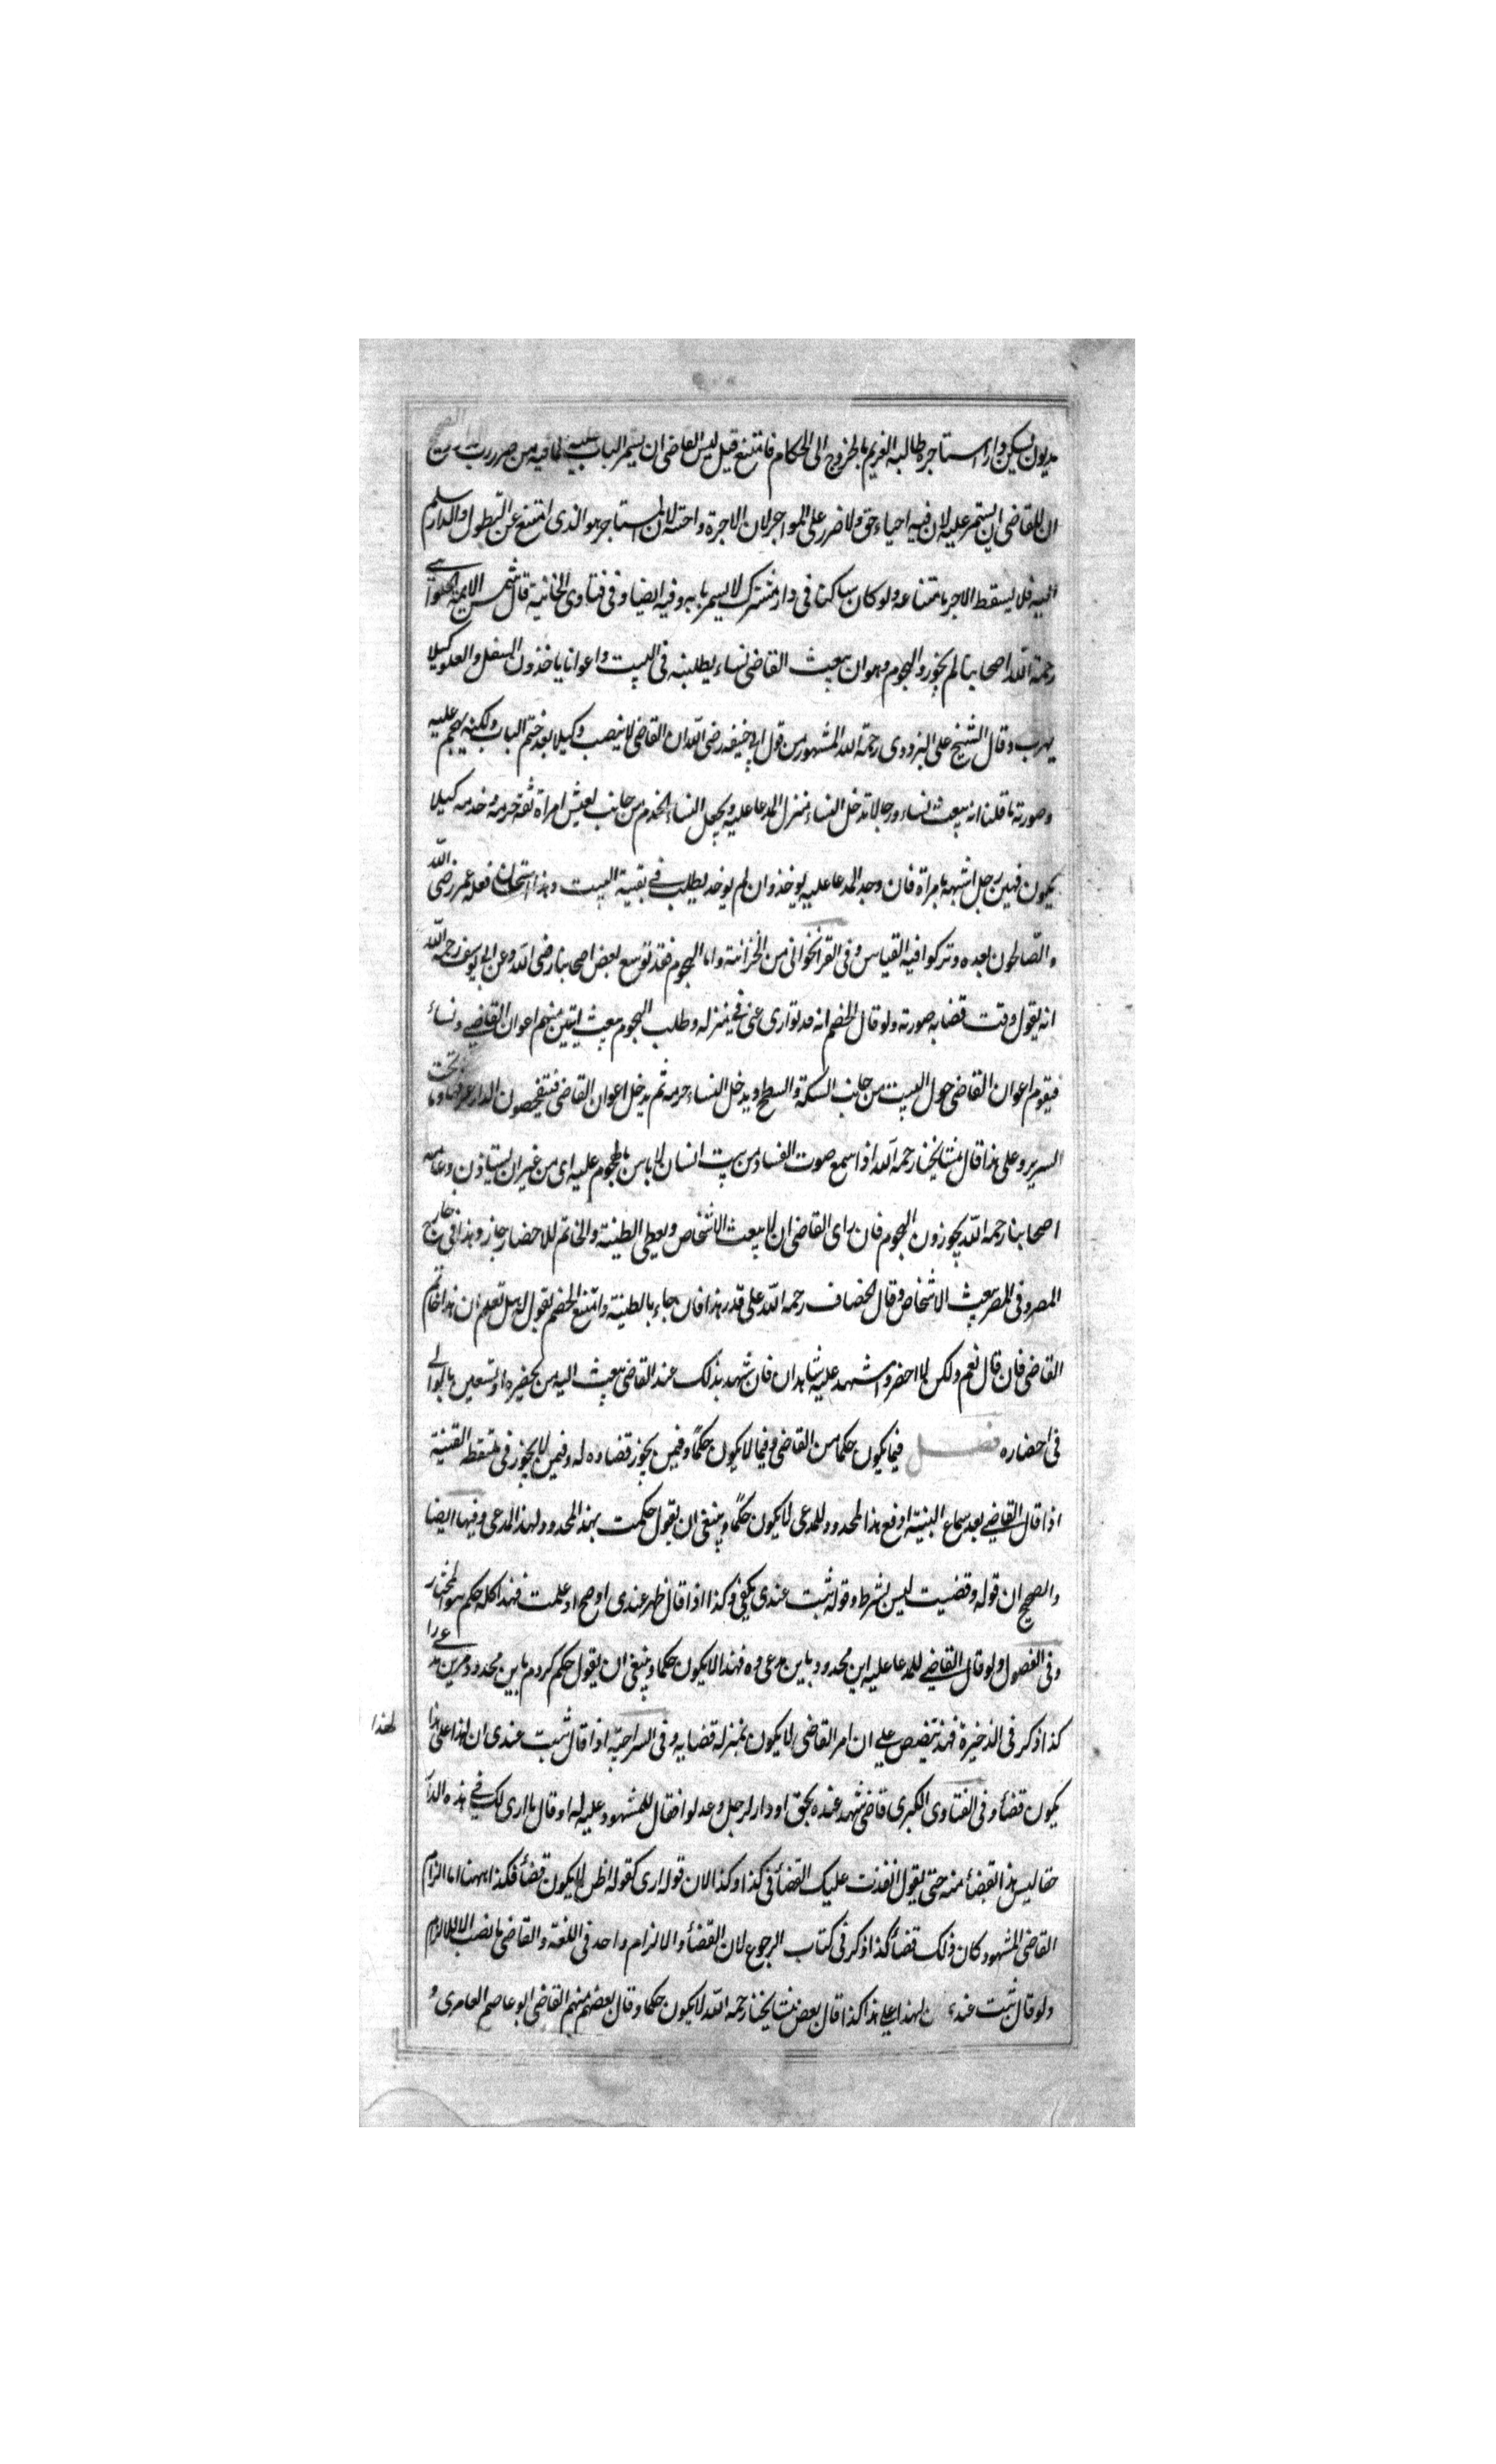 مديون يسكن دارا استاجره طالبه الغريم بالخروج الى الحكام فامتنع قيل ليس للقاضى ان يسمر الباب عليه لما فيه من ضرر رب الدار والصحيح
ان للقاضى ان يستمر عليه لان فيه احياء حق ولا ضرر على المواجر لان الاجرة واحتة لان المستاجر هو الذى امتنع عن التطول والدار سلم
اليه فلا يسقط الاجر بامتناعه ولو كان ساكنا فى دار مشترك لا يسمر بابه وفيه ايضا وفى فتاوى الخانية قال شمس الايمة الحلوانى
رحمة الله اصحابنا لم يجوزوا الهجوم وهو ان يبعث القاضى نساء يطلبنه فى البيت واعوانا ياخذون السفل والعلو كيلا
يهرب وقال الشيخ على البزدوى رحمة الله المشهور من قول ابى حنيفه رضى الله ان القاضى لا ينصب وكيلا بعد ختم الباب ولكنه يهجم عليه
وصورته ما قلنا انه يبعث نساء ورجالا تدخل النساء منزل المدعا عليه ويجعل النساء الخدم من جانب امراة ثقة حرمه وخدمه كيلا
يكون فيهن رجل اشبهه بامراة فان وجد المدعا عليه يوخذ وان لم يوخذ يطلب فى بقية البيت وهذا استحسان فعله عمر رضى الله
والصالحون بعده وتركوا فيه القياس وفى القراخوانى من الخزانة واما الهجوم فقد توسع بعض اصحابنا رضى الله وعن ابى يوسف رحمه الله
انه يقول وقت قضابه صورته ولو قال الخصم انه قد توارى عنى فى منزله وطلب الهجوم يبعث امينين منهم اعوان القاضى ونساء
فيقوم اعوان القاضى حول البيت من جانب السكة والسطح ويدخل النساء حرمه ثم يدخل اعوان القاضى فيتفحصون الدار غرفها وما تحت
السرير وعلى هذا قال مشايخنا رحمه الله اذا سمع صوت الفساد من بيت انسان لا باس بالهجوم عليه اى من غير ان يستاذن وعامه
اصحابنا رحمه الله يجوزون الهجوم فان راى القاضى ان لا يبعث الاشخاص ويعطى الطينة والخاتم للاحضار جاز وهذا فى خارج
المصر وفى المصر يبعث الاشخاص وقال الخصاف رحمه الله على قدر هذا فان جاء بالطينة وامتنع الخصم يقول له هل تعلم ان هذا خاتم
القاضى فان قال نعم ولكن لا احضر واشهد عليه شاهدان فان شهد بذلك عند القاضى يبعث اليه من يحضره او يستعين بالوالى
فى احضاره فصل فيما يكون حكما من القاضى وفيما لا يكون حكمًا وفيمن يجوز قضاوه له وفيمن لا يجوز فى ملتقط القنية
اذا قال القاضى بعد سماع البينة ادفع هذا المحدود للمدعى لا يكون حكمًا وينبغى ان يقول حكمت بهذا المحدود لهذا المدعى وفيها ايضا
والصحيح ان قوله وقضيت ليس بشرط وقوله ثبت عندى يكفى وكذا اذا قال ظهر عندى او صح او علمت فهذا كله حكم هو المختار
وفى الفصول ولو قال القاضى للمدعا عليه اين محدود باين مدعى ده فهذا لا يكون حكما وينبغى ان يقول حكم كردم باين محدود مرين مدعى را
كذا ذكر فى الذخيرة فهذا تنصيص على ان امر القاضى لا يكون بمنزله قضايه وفى السراجيه اذا قال ثبت عندى ان لهذا على هذا
لهذا
يكون قضأ وفى الفتاوى الكبرى قاضى شهد عنده بحق او دار لرجل وعدلوا فقال للمشهود عليه له او قال ما ارى لك فى هذه الدار
حقا ليس هذا بقضأ منه حتى يقول انفذت عليك القضأ فى كذا وكذا لان قوله ارى كقوله اظن لا يكون قضأ فكذا ههنا اما الزام
القاضى المشهود كان ذلك قضأ كذا ذكر فى كتاب الرجوع لان القضأ والالزام واحد فى اللغة والقاضى ما نصب الا للالزام
ولو قال ثبت عنده ان لهذا على هذا كذا قال بعض مشايخنا رحمه الله لا يكون حكما وقال بعضهم منهم القاضى ابو عاصم العامرى و